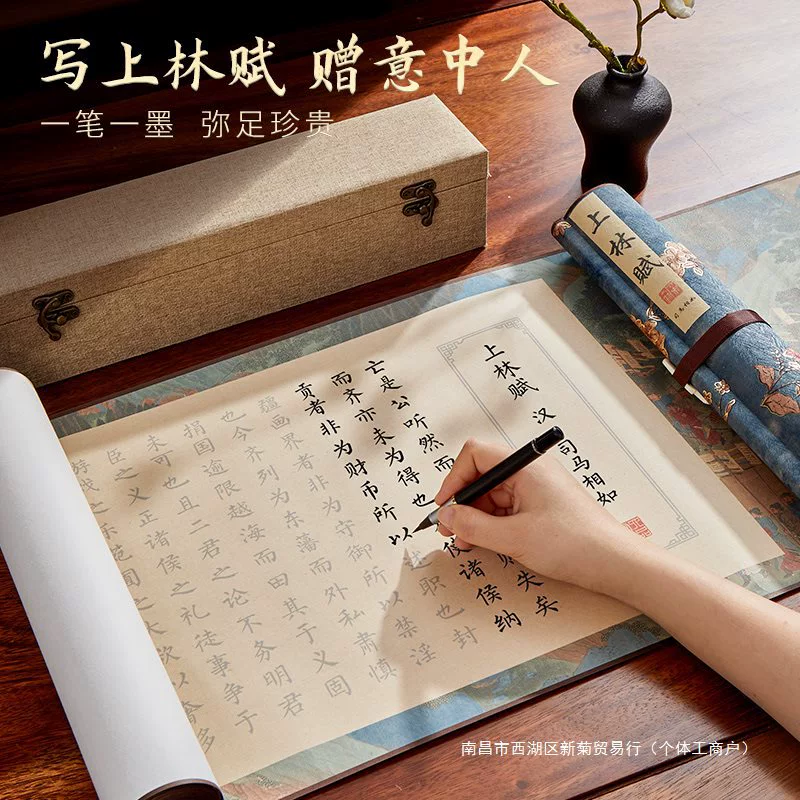 写上林赋 赠意中人
一笔一墨 弥足珍贵
上林赋
上林赋 汉 司马相如
亡是公听然而
则失矣
而齐亦未为得也
使诸侯纳
贡者非为财币所以述职也封
疆画界者非为守御所以禁淫
也今齐列为东藩而外私肃慎
捐国逾限越海而田其于义固
未可也且二君之论不务明君
臣之义正诸侯之礼徒事争于
游戏之乐苑囿之大欲以奢侈
南昌市西湖区新菊贸易行（个体工商户）